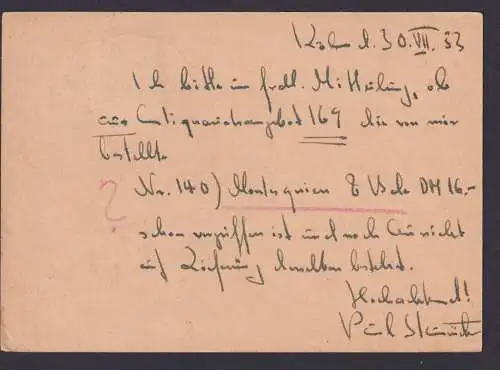 Köln d. 30.VII.53
Ich bitte um frdl. Mitteilung, ob
aus Antiquariatsangebot 169 die von mir
bestellte
Nr. 140) Montesquieu 8 Bde DM 16.-
schon vergriffen ist und noch Aussicht
auf Lieferung derselben besteht.
Hochachtend!
Paul